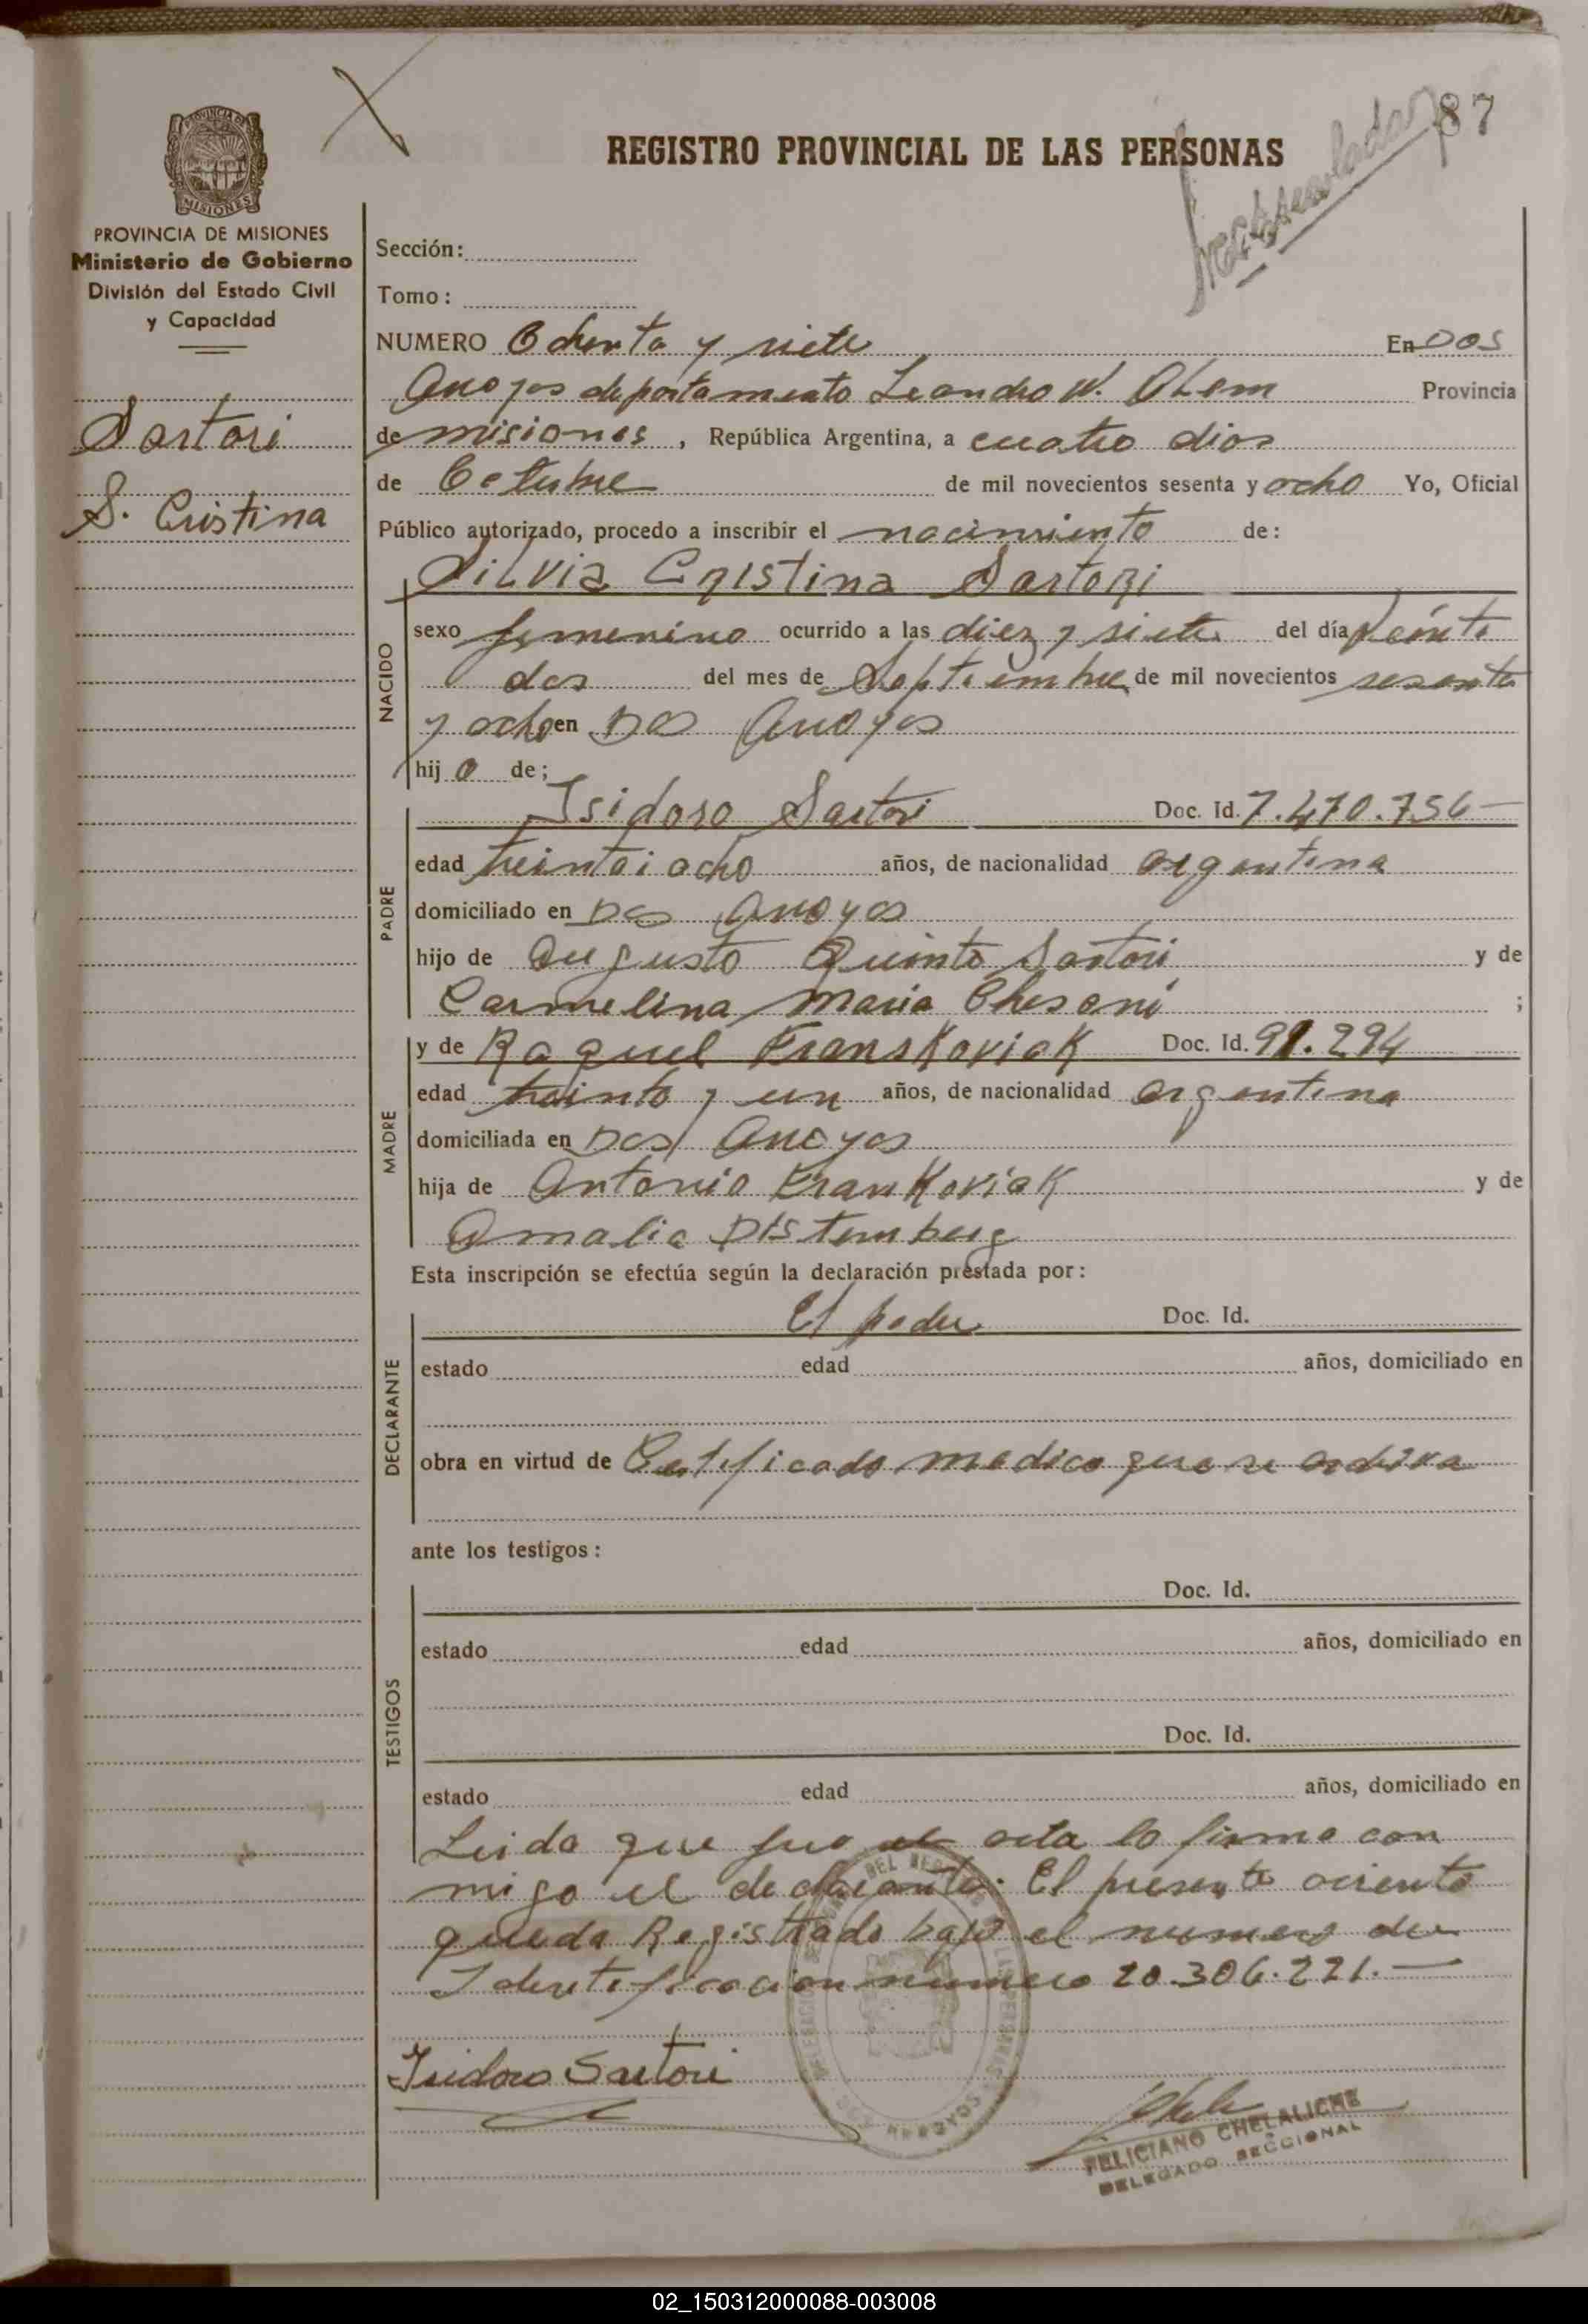 87
REGISTRO PROVINCIAL DE LAS PERSONAS
PROVINCIA DE
MISIONES
PROVINCIA DE MISIONES
Ministerio de Gobierno
División del Estado Civil
y Capacidad
Sartori
S. Cristina
Sección:
Tomo:
NUMERO Ochenta y siete En Dos
Arroyos departamento Leandro N. Alem Provincia
de misiones, República Argentina, a cuatro dias
de Octubre de mil novecientos sesenta y ocho Yo, Oficial
Público autorizado, procedo a inscribir el nacimiento de:
Silvia Cristina Sartori
NACIDO
sexo femenino ocurrido a las diez y siete del día veinte
dos del mes de Septiembre de mil novecientos sesenta
y ocho en Dos Arroyos
hija de;
PADRE
Isidoro Sartori Doc. Id. 7.470.756
edad treintaiocho años, de nacionalidad argentina
domiciliado en Dos Arroyos
hijo de Augusto Quinto Sartori y de
Carmelina Maria Chesani;
MADRE
y de Raquel Franskoviak Doc. Id. 91.294
edad treinta y un años, de nacionalidad argentina
domiciliada en Dos Arroyos
hija de Antonio Frankoviak y de
Amalia Distemberg
Esta inscripción se efectúa según la declaración prestada por:
DECLARANTE
El padre Doc. Id.
estado edad años, domiciliado en
obra en virtud de Certificado medico que se archiva
ante los testigos:
TESTIGOS
Doc. Id.
estado edad años, domiciliado en
Doc. Id.
estado edad años, domiciliado en
Leida que fue el acta la firma con
migo el declarante. El presente aciento
queda Registrado bajo el numero de
Identificacion numero 20.306.221.
Isidoro Sartori
FELICIANO CHELALICHE
DELEGADO SECCIONAL
02_150312000088-003008